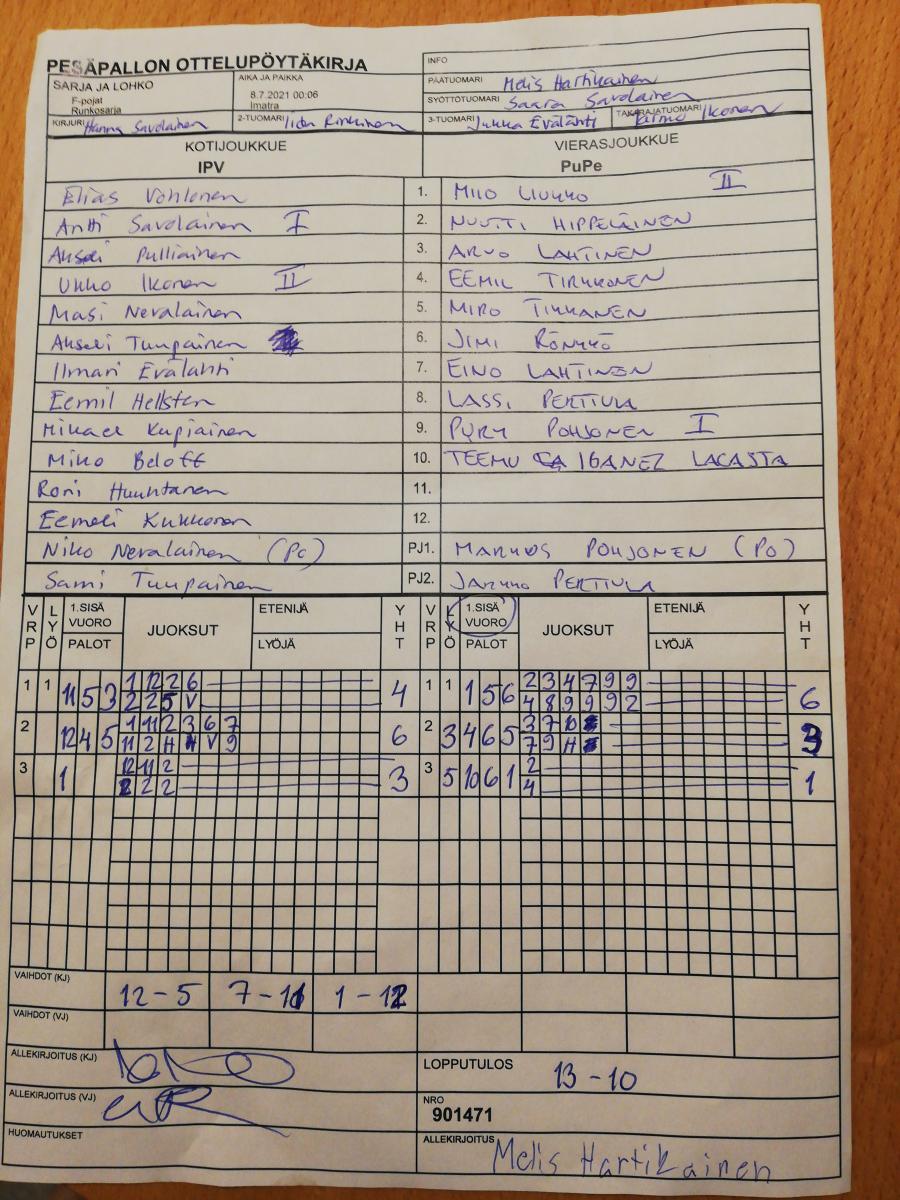 PESÄPALLON OTTELUPÖYTÄKIRJA
INFO
SARJA JA LOHKO
F-pojat
Runkosarja
AIKA JA PAIKKA
8.7.2021 00:06
Imatra
PÄÄTUOMARI Melis Hartikainen
SYÖTTÖTUOMARI Saara Savolainen
KIRJURI Hanna Savolainen
2-TUOMARI Iida Rinkinen
3-TUOMARI Jukka Evälahti
TAKARAJATUOMARI Ikonen
KOTIJOUKKUE
IPV
VIERASJOUKKUE
PuPe
Elias Vohlonen 1. MILO LIUKKO II
Antti Savolainen I 2. NUUTTI HIPPELÄINEN
Akseli Pulliainen 3. ARVO LAHTINEN
Ukko Ikonen II 4. EEMIL TIRKKONEN
Masi Nevalainen 5. MIRO TIKKANEN
Akseli Tuupainen 6. JIMI RÖNKKÖ
Ilmari Evälahti 7. EINO LAHTINEN
Eemil Hellsten 8. LASSI PERTTULA
Mikael Kupiainen 9. PYRY POHJONEN I
Miko Beloff 10. TEEMU IGANEZ LACASTA
Roni Huuhtanen 11.
Eemeli Kukkonen 12.
Niko Nevalainen (PC) PJ1. MARKUS POHJONEN (PO)
Sami Tuupainen PJ2. JARKKO PERTTULA
VRP LYÖ 1.SISÄ VUORO PALOT JUOKSUT ETENIJÄ LYÖJÄ YHT VRP LYÖ 1.SISÄ VUORO PALOT JUOKSUT ETENIJÄ LYÖJÄ YHT
1 1 11 5 3 1 12 2 6 4 1 1 1 5 6 2 3 4 7 9 9 6
2 2 5 V 4 8 9 9 9 2
2 12 4 5 1 11 2 3 6 7 6 2 3 4 6 5 3 7 10 3
11 2 H H V 9 7 9 H
3 1 12 11 2 3 3 5 10 6 1 2 1
2 2 2 4
VAIHDOT (KJ) 12-5 7-11 1-12
VAIHDOT (VJ)
ALLEKIRJOITUS (KJ)
LOPPUTULOS 13-10
ALLEKIRJOITUS (VJ)
NRO
901471
HUOMAUTUKSET
ALLEKIRJOITUS Melis Hartikainen